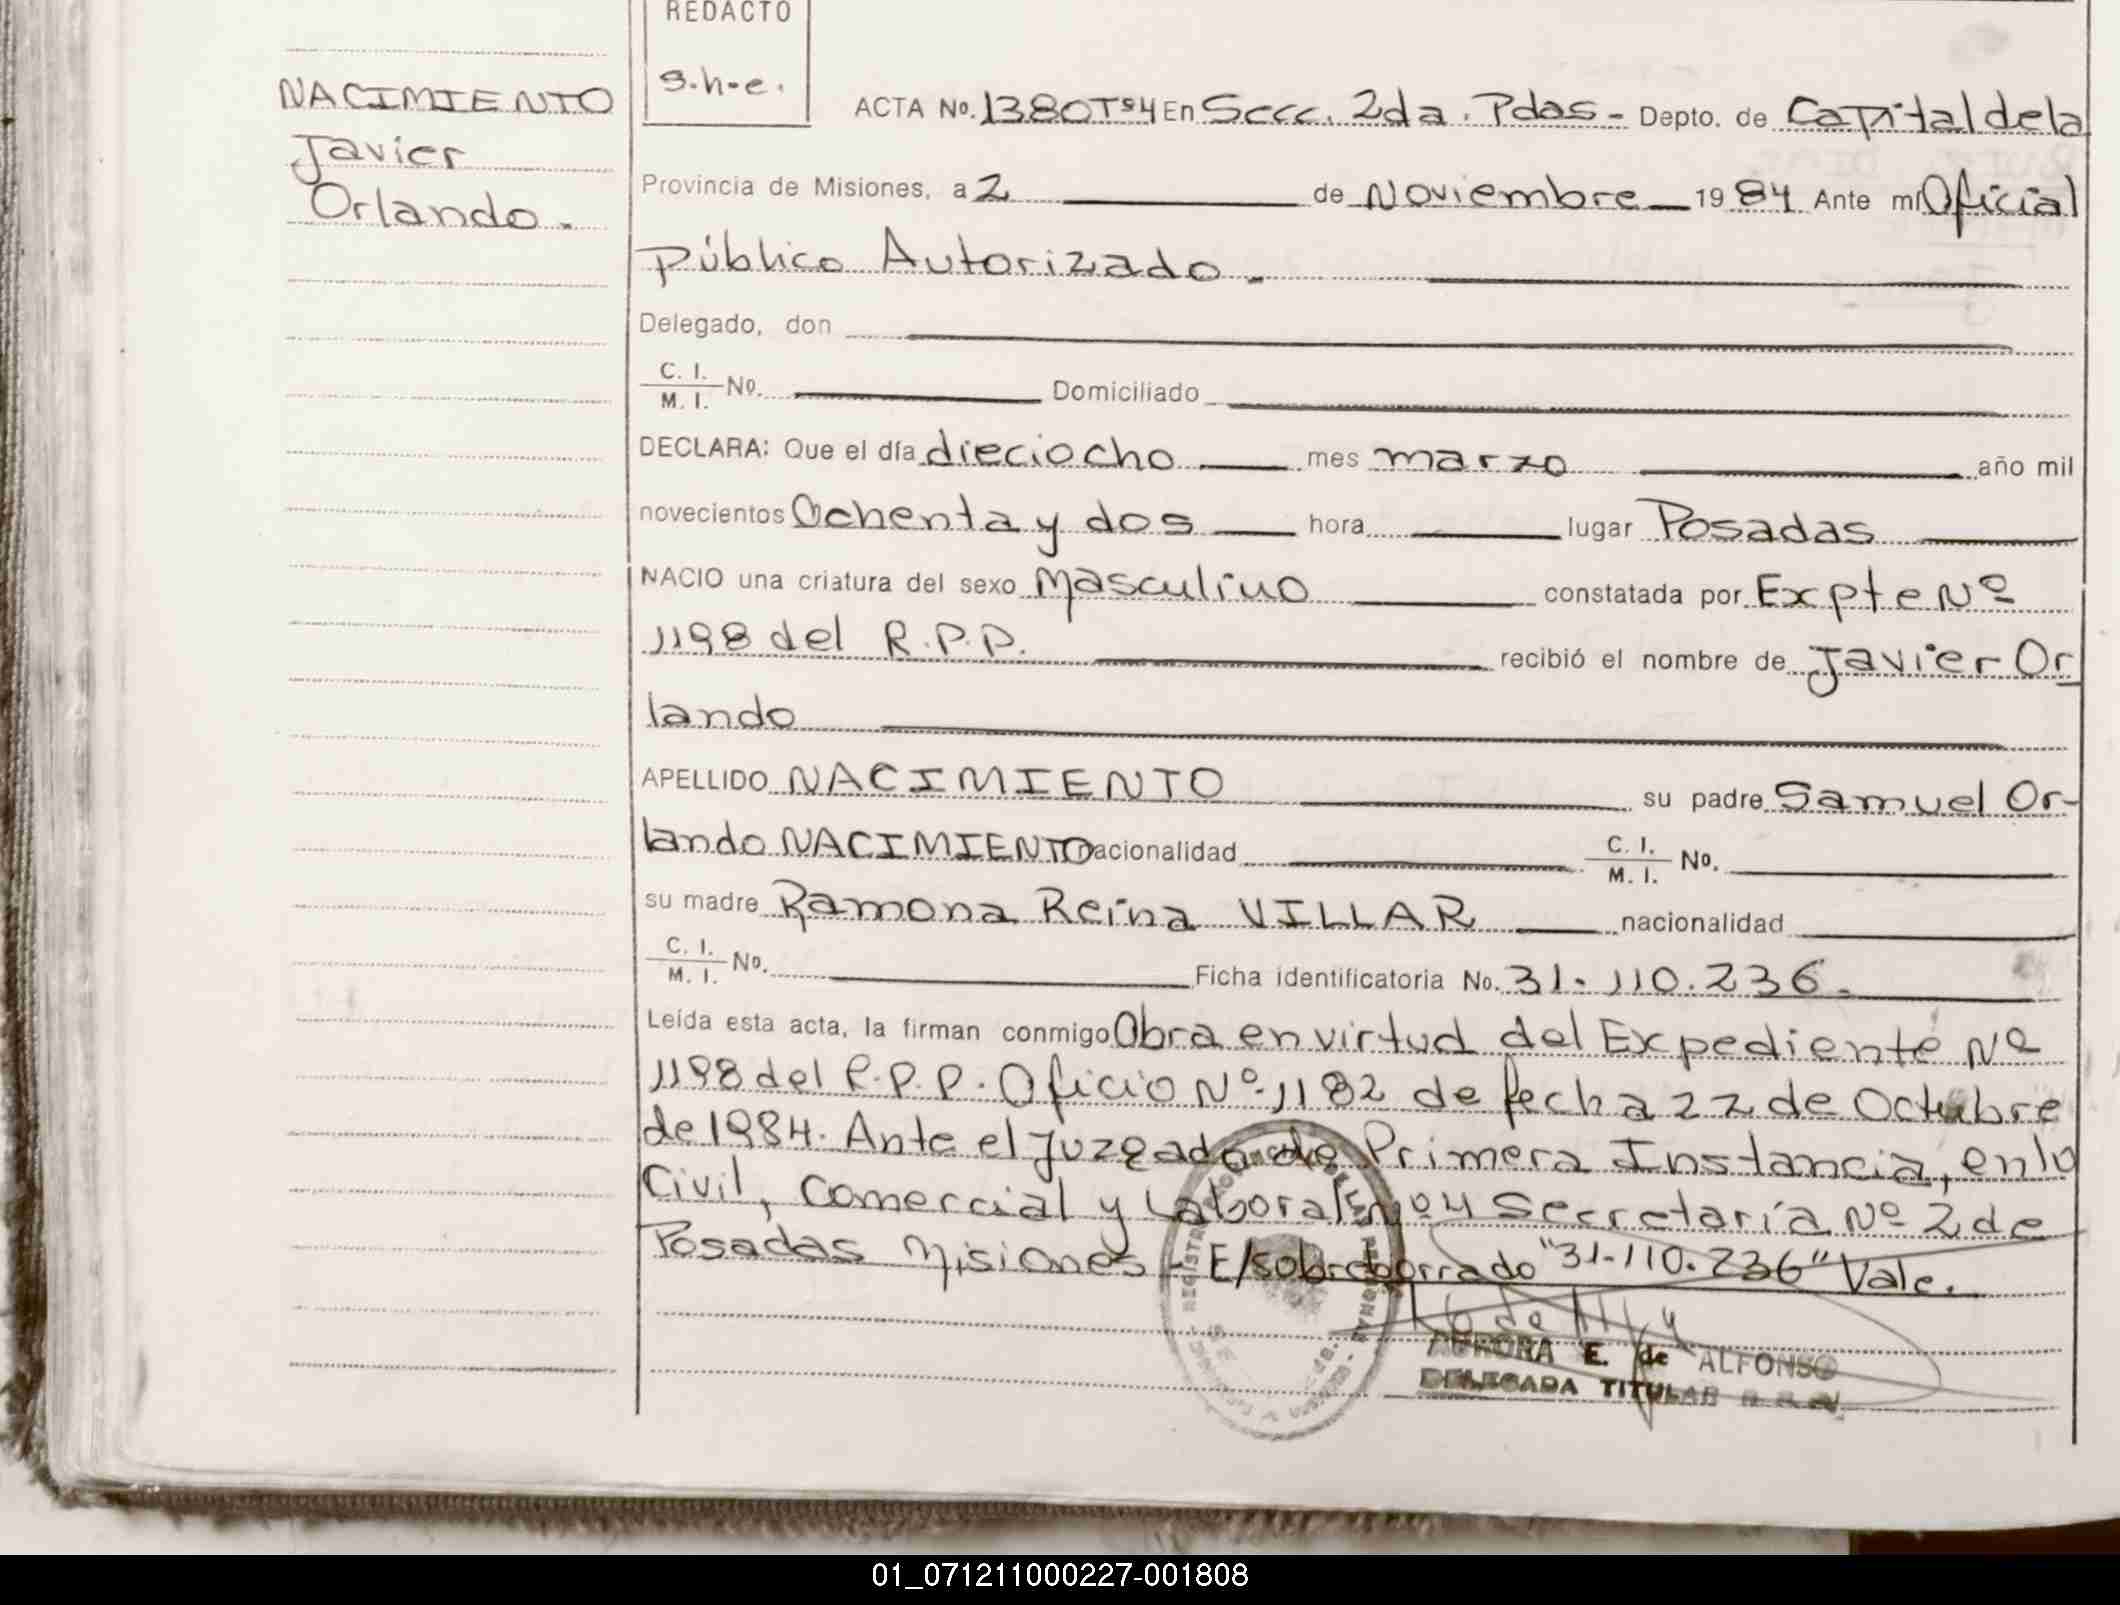 REDACTO
s.h.e.
NACIMIENTO
Javier
Orlando.
ACTA Nº. 1380 Tº4 En Secc. 2da. Pdas - Depto. de Capital de la
Provincia de Misiones, a 2 de Noviembre 1984 Ante mí Oficial
Público Autorizado.
Delegado, don
C. I.
M. I. Nº. Domiciliado
DECLARA: Que el día dieciocho mes marzo año mil
novecientos Ochenta y dos hora lugar Posadas
NACIO una criatura del sexo Masculino constatada por Expte Nº
1198 del R.P.P. recibió el nombre de Javier Or
lando
APELLIDO NACIMIENTO su padre Samuel Or-
lando NACIMIENTO nacionalidad C. I.
M. I. Nº.
su madre Ramona Reina VILLAR nacionalidad
C. I.
M. I. Nº. Ficha identificatoria No. 31-110.236.
Leída esta acta, la firman conmigo Obra en virtud del Expediente Nº
1198 del R.P.P. Oficio Nº 1182 de fecha 22 de Octubre
de 1984. Ante el Juzgado de Primera Instancia, en lo
Civil, Comercial y Laboral Nº4 Secretaría Nº 2 de
Posadas Misiones - E/sobreborrado "31-110.236" Vale.
AURORA E. de ALFONSO
DELEGADA TITULAR
01_071211000227-001808